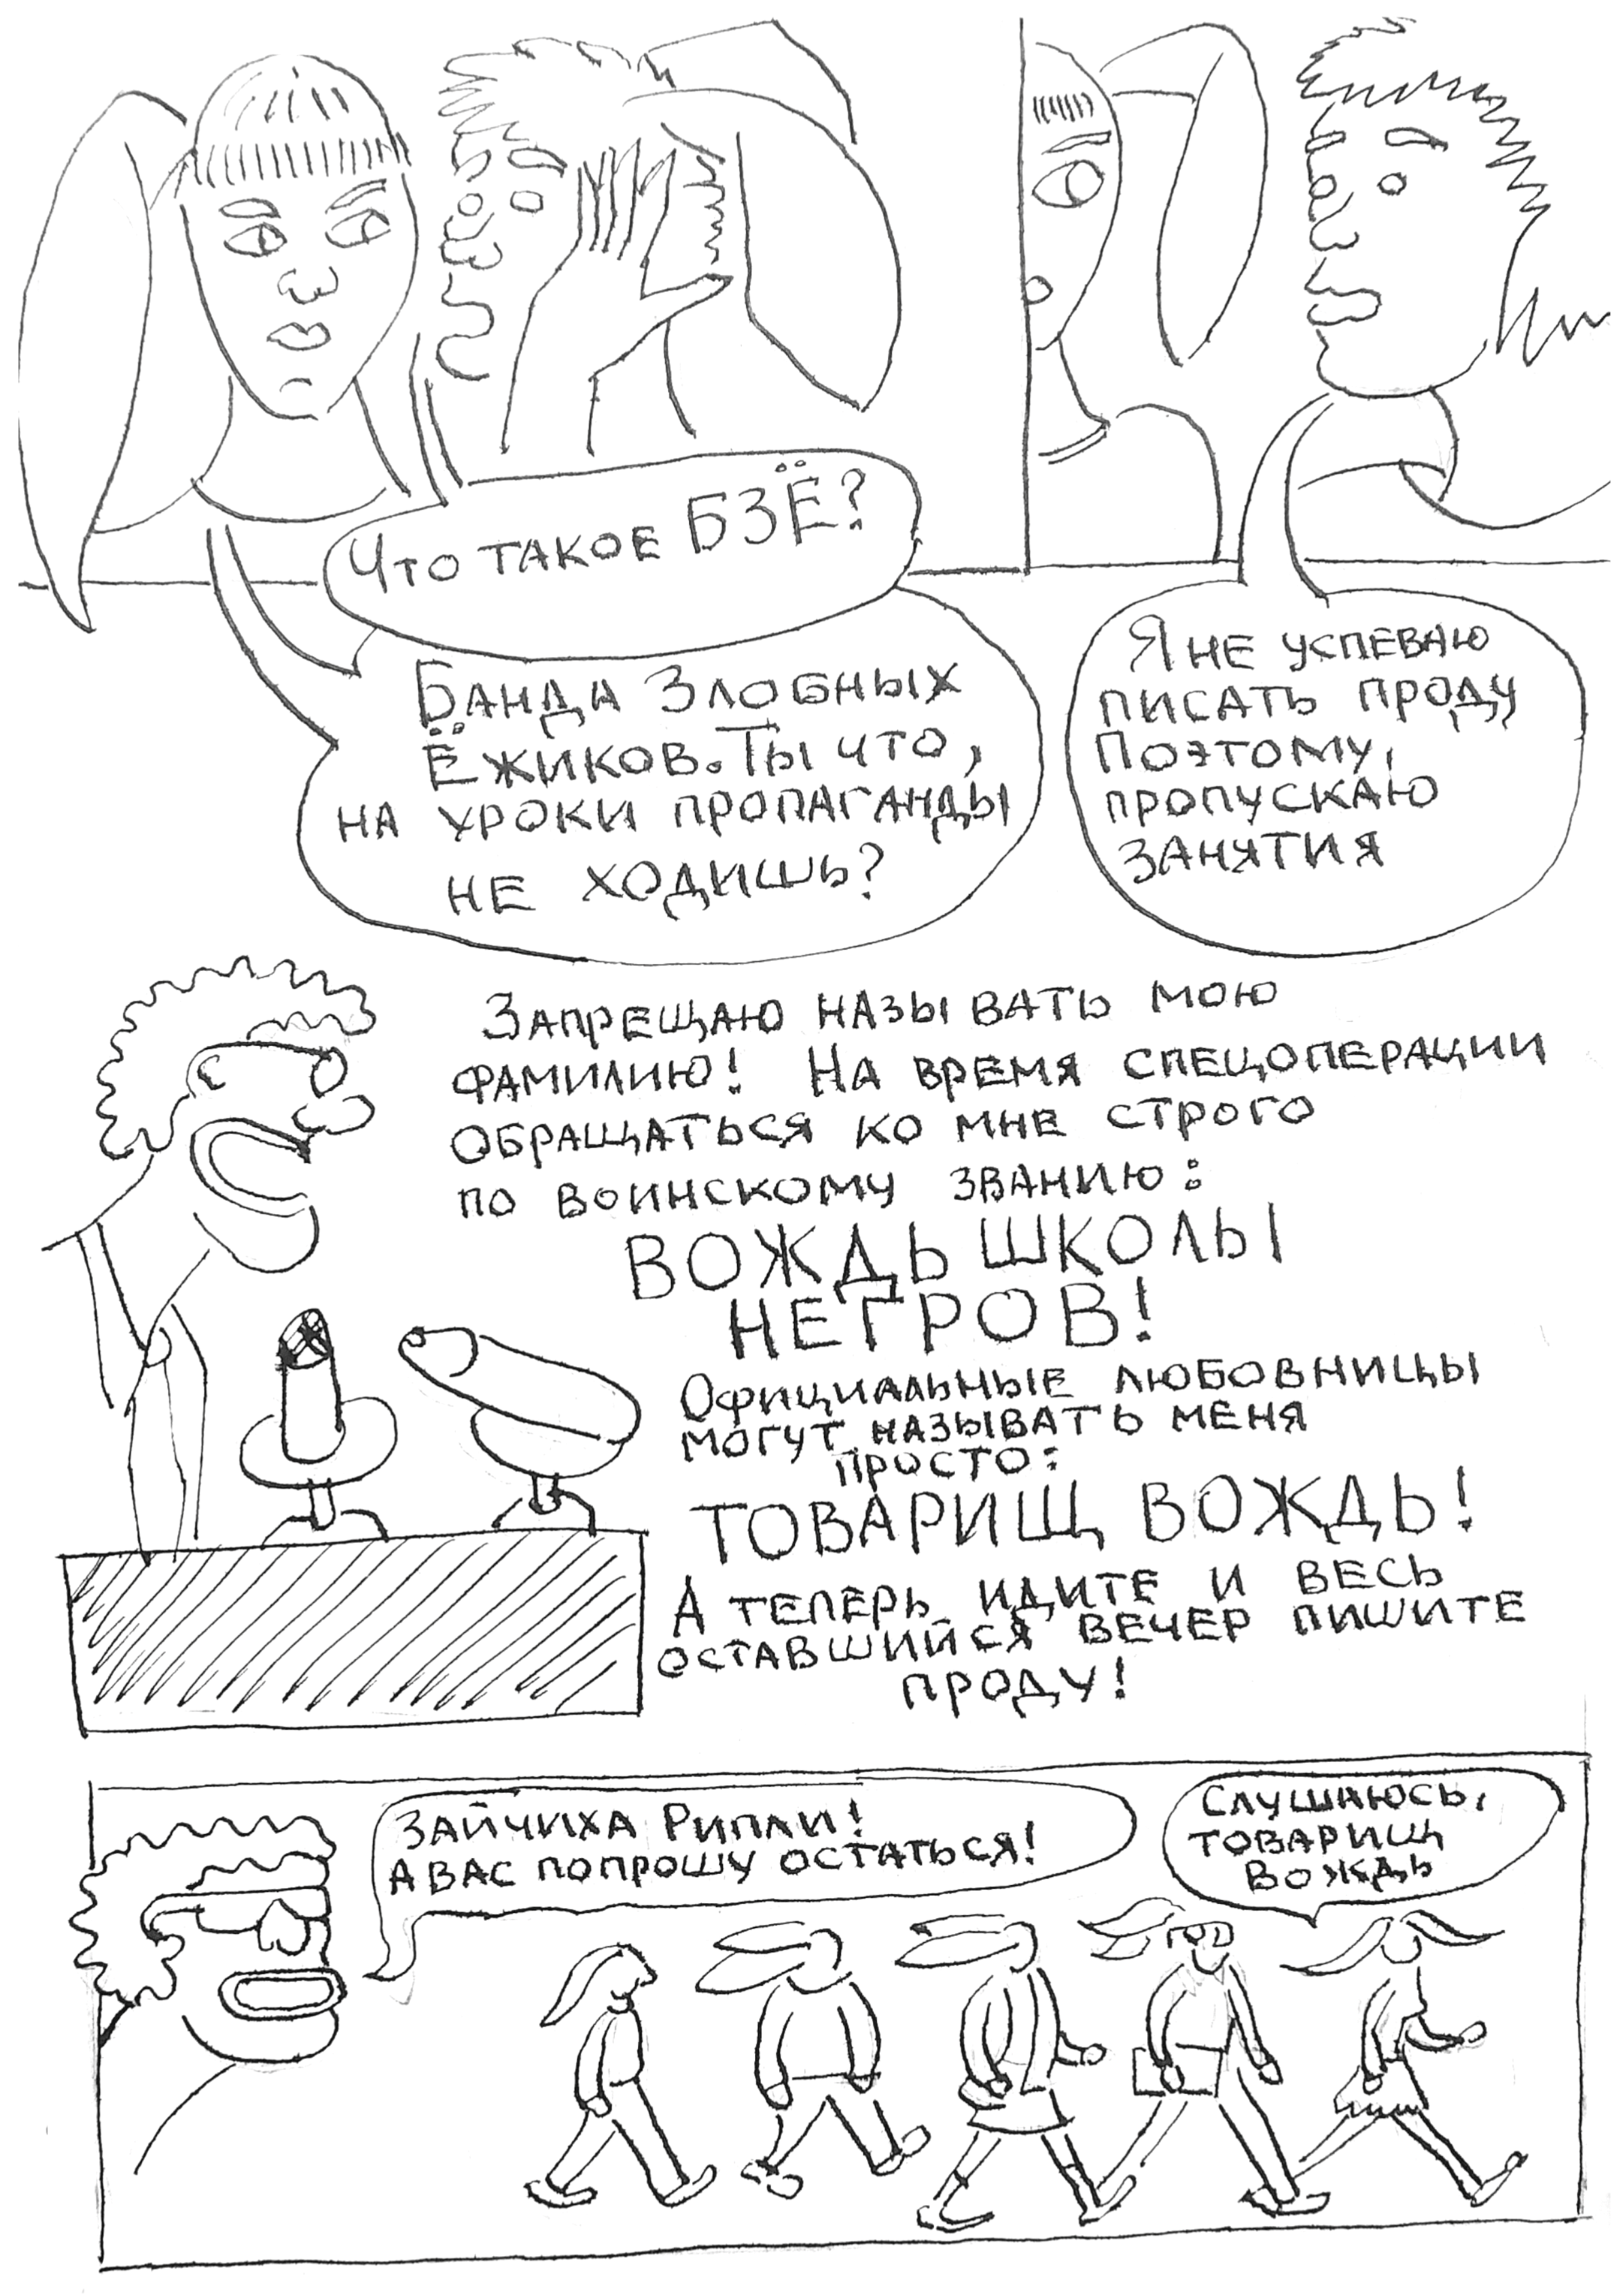 Что такое БЗЁ?
Банда Злобных
Ёжиков. Ты что,
на уроки пропаганды
не ходишь?
Я не успеваю
писать проду
Поэтому,
пропускаю
занятия
Запрещаю называть мою
фамилию! На время спецоперации
обращаться ко мне строго
по воинскому званию:
ВОЖДЬ ШКОЛЫ
НЕГРОВ!
Официальные любовницы
могут называть меня
просто:
ТОВАРИЩ ВОЖДЬ!
А теперь идите и весь
оставшийся вечер пишите
проду!
Зайчиха Рипли!
А вас попрошу остаться!
Слушаюсь,
товарищ
вождь